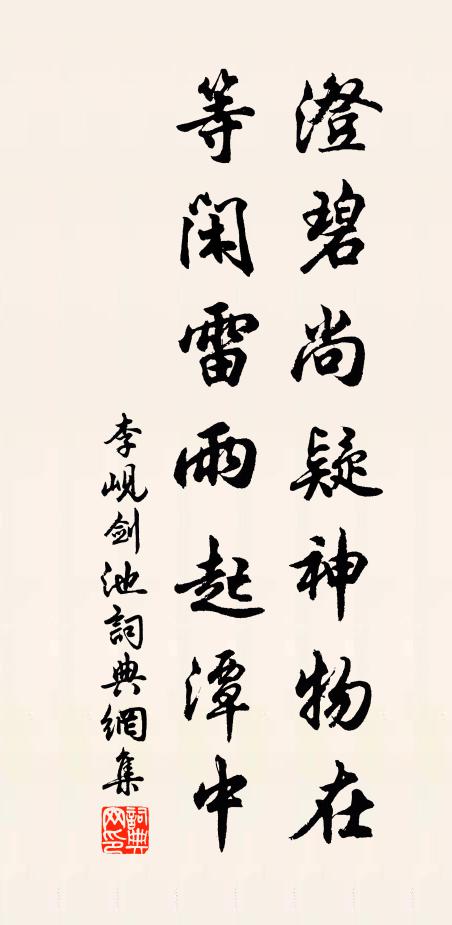 澄碧尚疑神物在
等閑雷雨起潭中
李峴劍池詞典網集
詞典网印